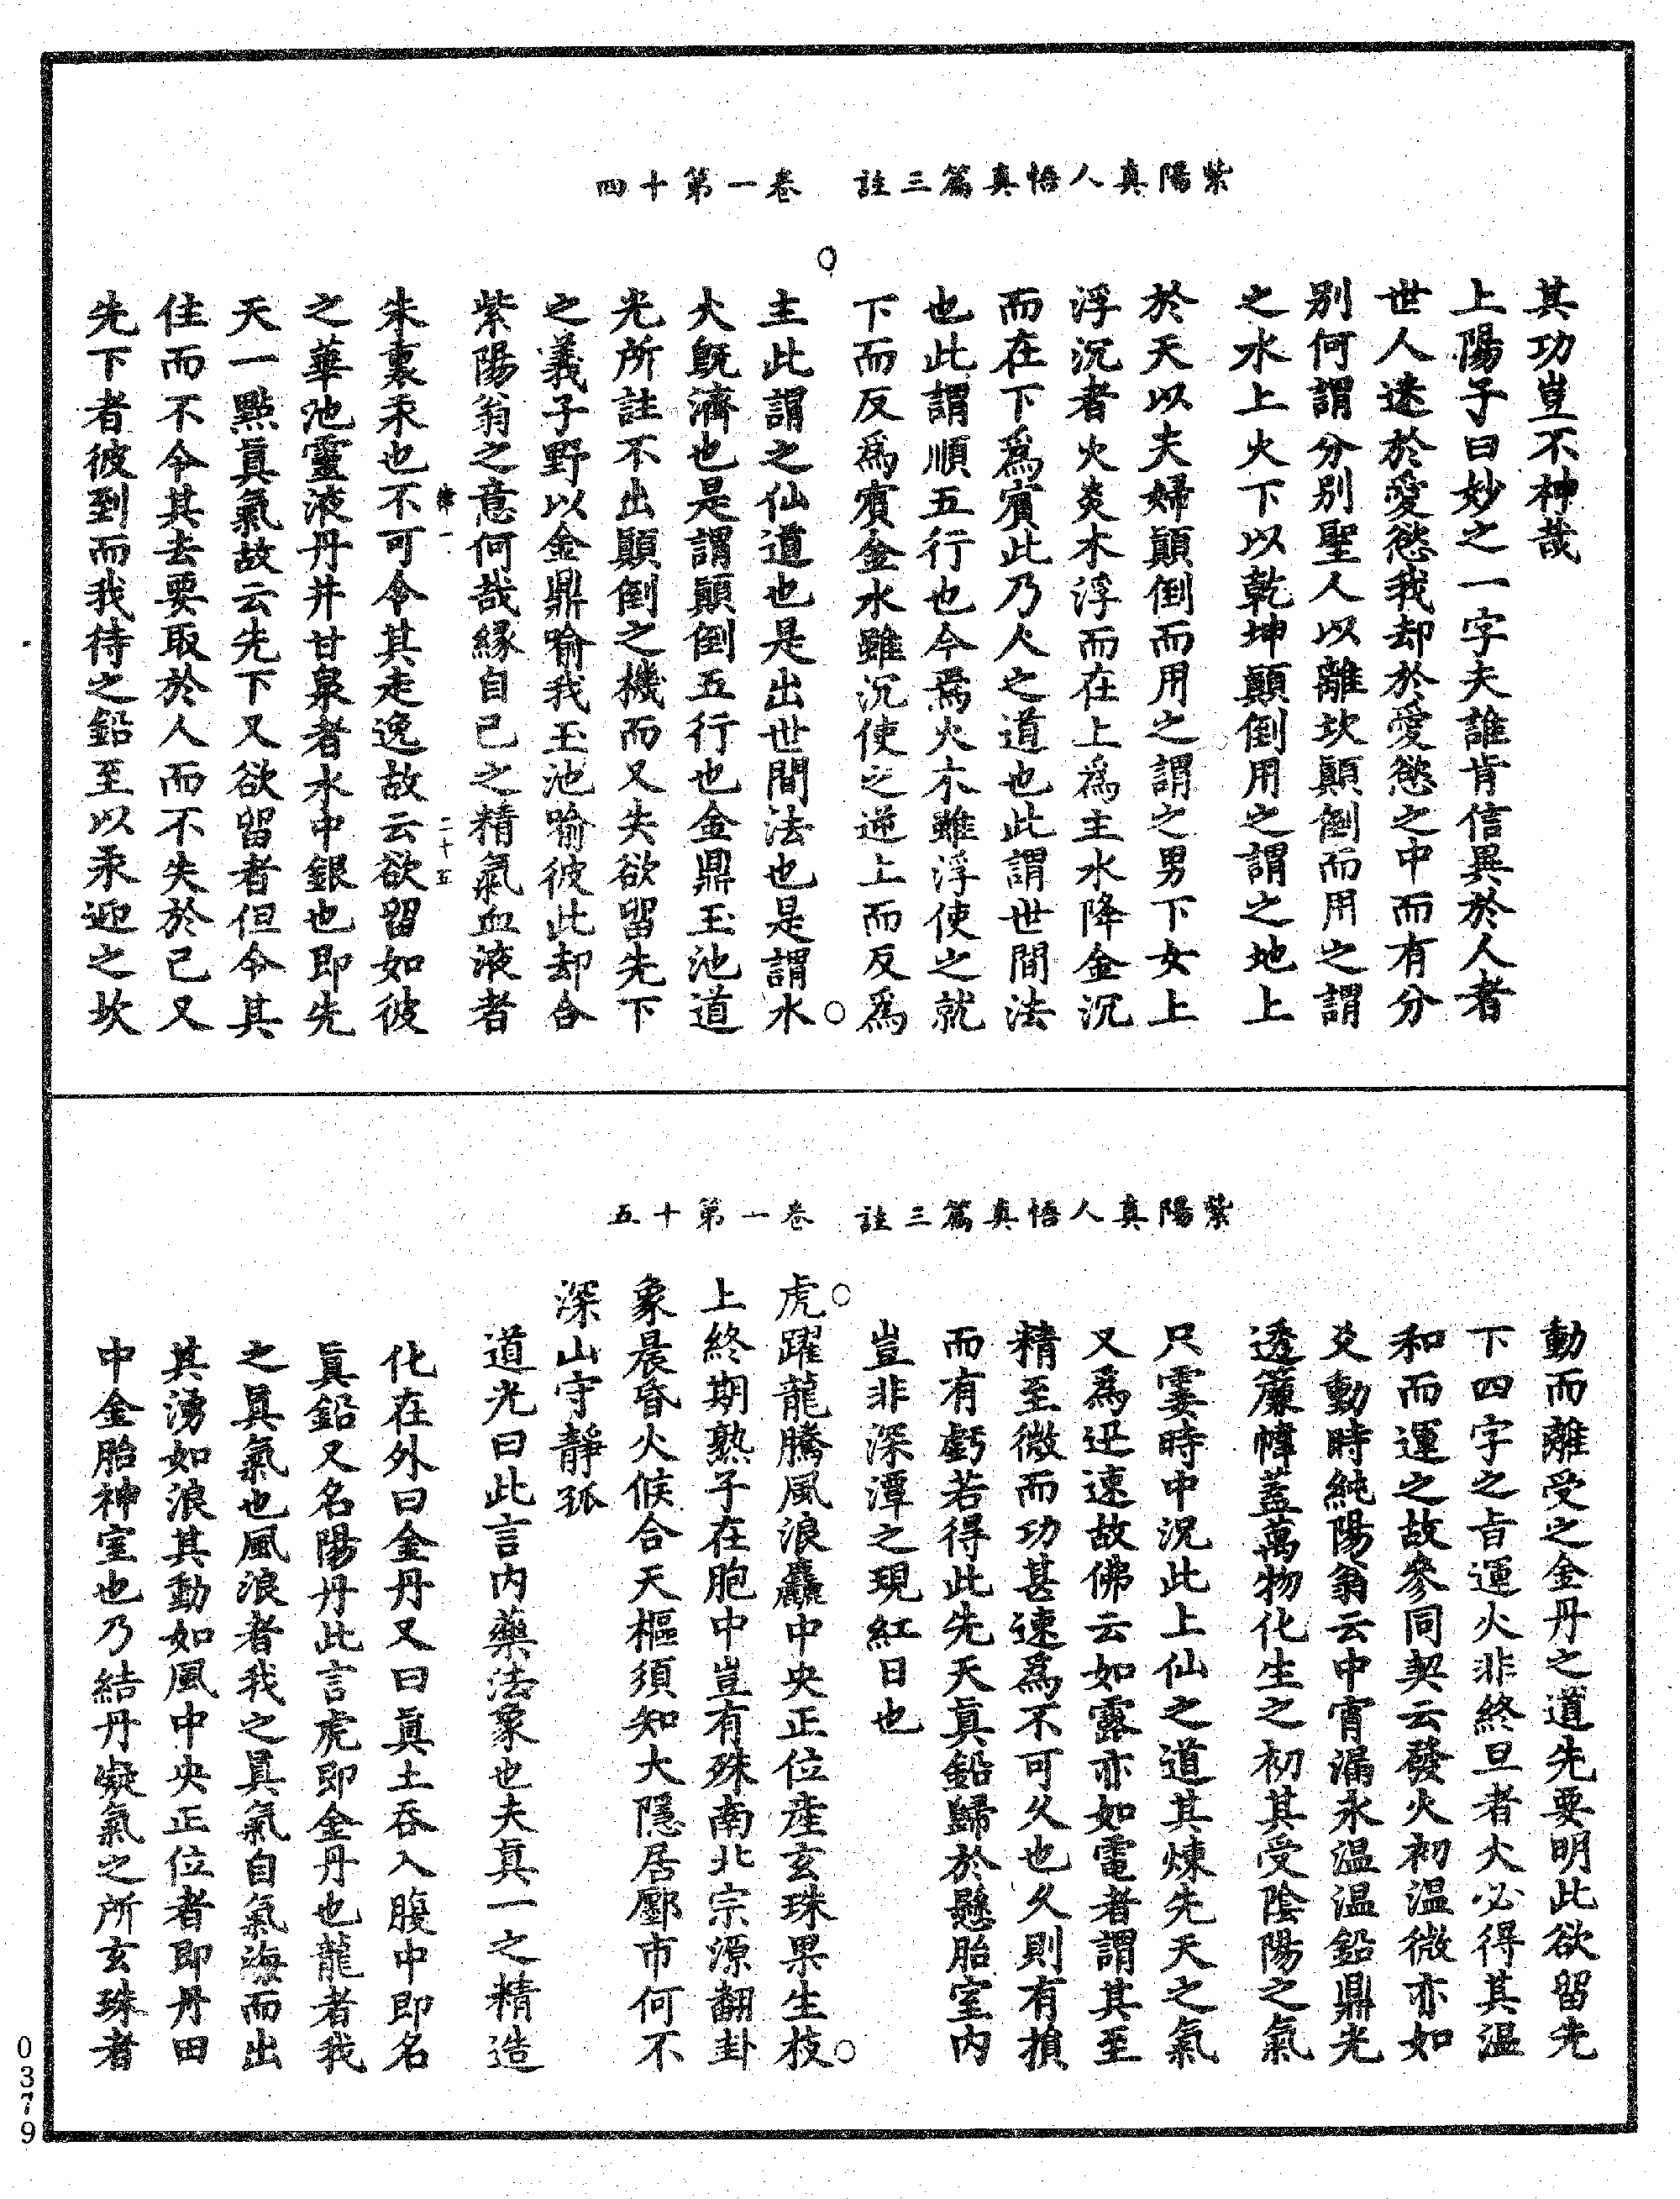 紫陽真人悟真篇三註　卷一第十四
其功豈不神哉
上陽子曰妙之一字夫誰肯信異於人者
世人迷於愛慾我却於愛慾之中而有分
別何謂分別聖人以離坎顛倒而用之謂
之水上火下以乾坤顛倒用之謂之地上
於天以夫婦顛倒而用之謂之男下女上
浮沉者火炎木浮而在上爲主水降金沉
而在下爲賓此乃人之道也此謂世間法
也此謂順五行也今焉火木雖浮使之就
下而反爲賓金水雖沉使之逆上而反爲
主此謂之仙道也是出世間法也是謂水
火旣濟也是謂顛倒五行也金鼎玉池道
光所註不出顛倒之機而又失欲留先下
之義子野以金鼎喻我玉池喻彼此却合
紫陽翁之意何哉緣自己之精氣血液者
律一　二十五
朱裏汞也不可令其走逸故云欲留如彼
之華池靈液丹井甘泉者水中銀也即先
天一點眞氣故云先下又欲留者但令其
住而不令其去要取於人而不失於己又
先下者彼到而我待之鉛至以汞迎之坎
紫陽真人悟真篇三註　卷一第十五
動而離受之金丹之道先要明此欲留先
下四字之旨運火非終旦者火必得其温
和而運之故參同契云發火初温微亦如
爻動時純陽翁云中宵漏永温温鉛鼎光
透簾幃蓋萬物化生之初其受陰陽之氣
只霎時中況此上仙之道其煉先天之氣
又爲迅速故佛云如露亦如電者謂其至
精至微而功甚速爲不可久也久則有損
而有虧若得此先天眞鉛歸於懸胎室内
豈非深潭之現紅日也
虎躍龍騰風浪麤中央正位産玄珠果生枝
上終期熟子在胞中豈有殊南北宗源翻卦
象晨昏火候合天樞須知大隱居鄽市何不
深山守靜孤
道光曰此言内藥法象也夫真一之精造
化在外曰金丹又曰眞土吞入腹中即名
眞鉛又名陽丹此言虎即金丹也龍者我
之真氣也風浪者我之真氣自氣海而出
其湧如浪其動如風中央正位者即丹田
中金胎神室也乃結丹凝氣之所玄珠者
0379